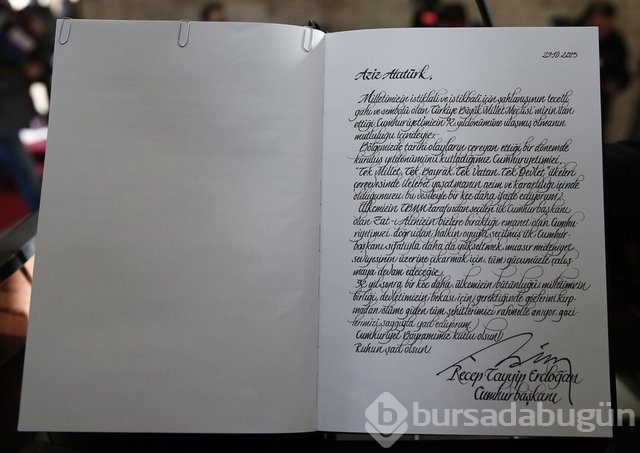 29.10.2015
Aziz Atatürk,
Milletimizin istiklali ve istikbali için şahlanışının tecelli-
gâhı ve sembolü olan Türkiye Büyük Millet Meclisi'mizin ilan
ettiği Cumhuriyetimizin 92. yıldönümüne ulaşmış olmanın
mutluluğu içindeyiz.
Bölgemizde tarihi olayların cereyan ettiği bir dönemde
kuruluş yıldönümünü kutladığımız Cumhuriyetimizi,
"Tek Millet, Tek Bayrak, Tek Vatan, Tek Devlet" ilkeleri
çerçevesinde ilelebet yaşatmanın azim ve kararlılığı içinde
olduğumuzu bu vesileyle bir kez daha ifade ediyorum.
Ülkemizin TBMM tarafından seçilen ilk Cumhurbaşkanı
olan Zat-ı Alinizin bizlere bıraktığı emanet olan Cumhu-
riyetimizi, doğrudan halkın oyuyla seçilmiş ilk Cumhur-
başkanı sıfatıyla daha da yükseltmek, muasır medeniyet
seviyesinin üzerine çıkarmak için, tüm gücümüzle çalış-
maya devam edeceğiz.
92 yıl sonra bir kez daha, ülkemizin bütünlüğü, milletimizin
birliği, devletimizin bekası için, gerektiğinde gözlerini kırp-
madan ölüme giden tüm şehitlerimizi rahmetle anıyor, gazi-
lerimizi saygıyla yad ediyorum.
Cumhuriyet Bayramımız kutlu olsun!
Ruhun şad olsun.
Recep Tayyip Erdoğan
Cumhurbaşkanı
b bursadabugün